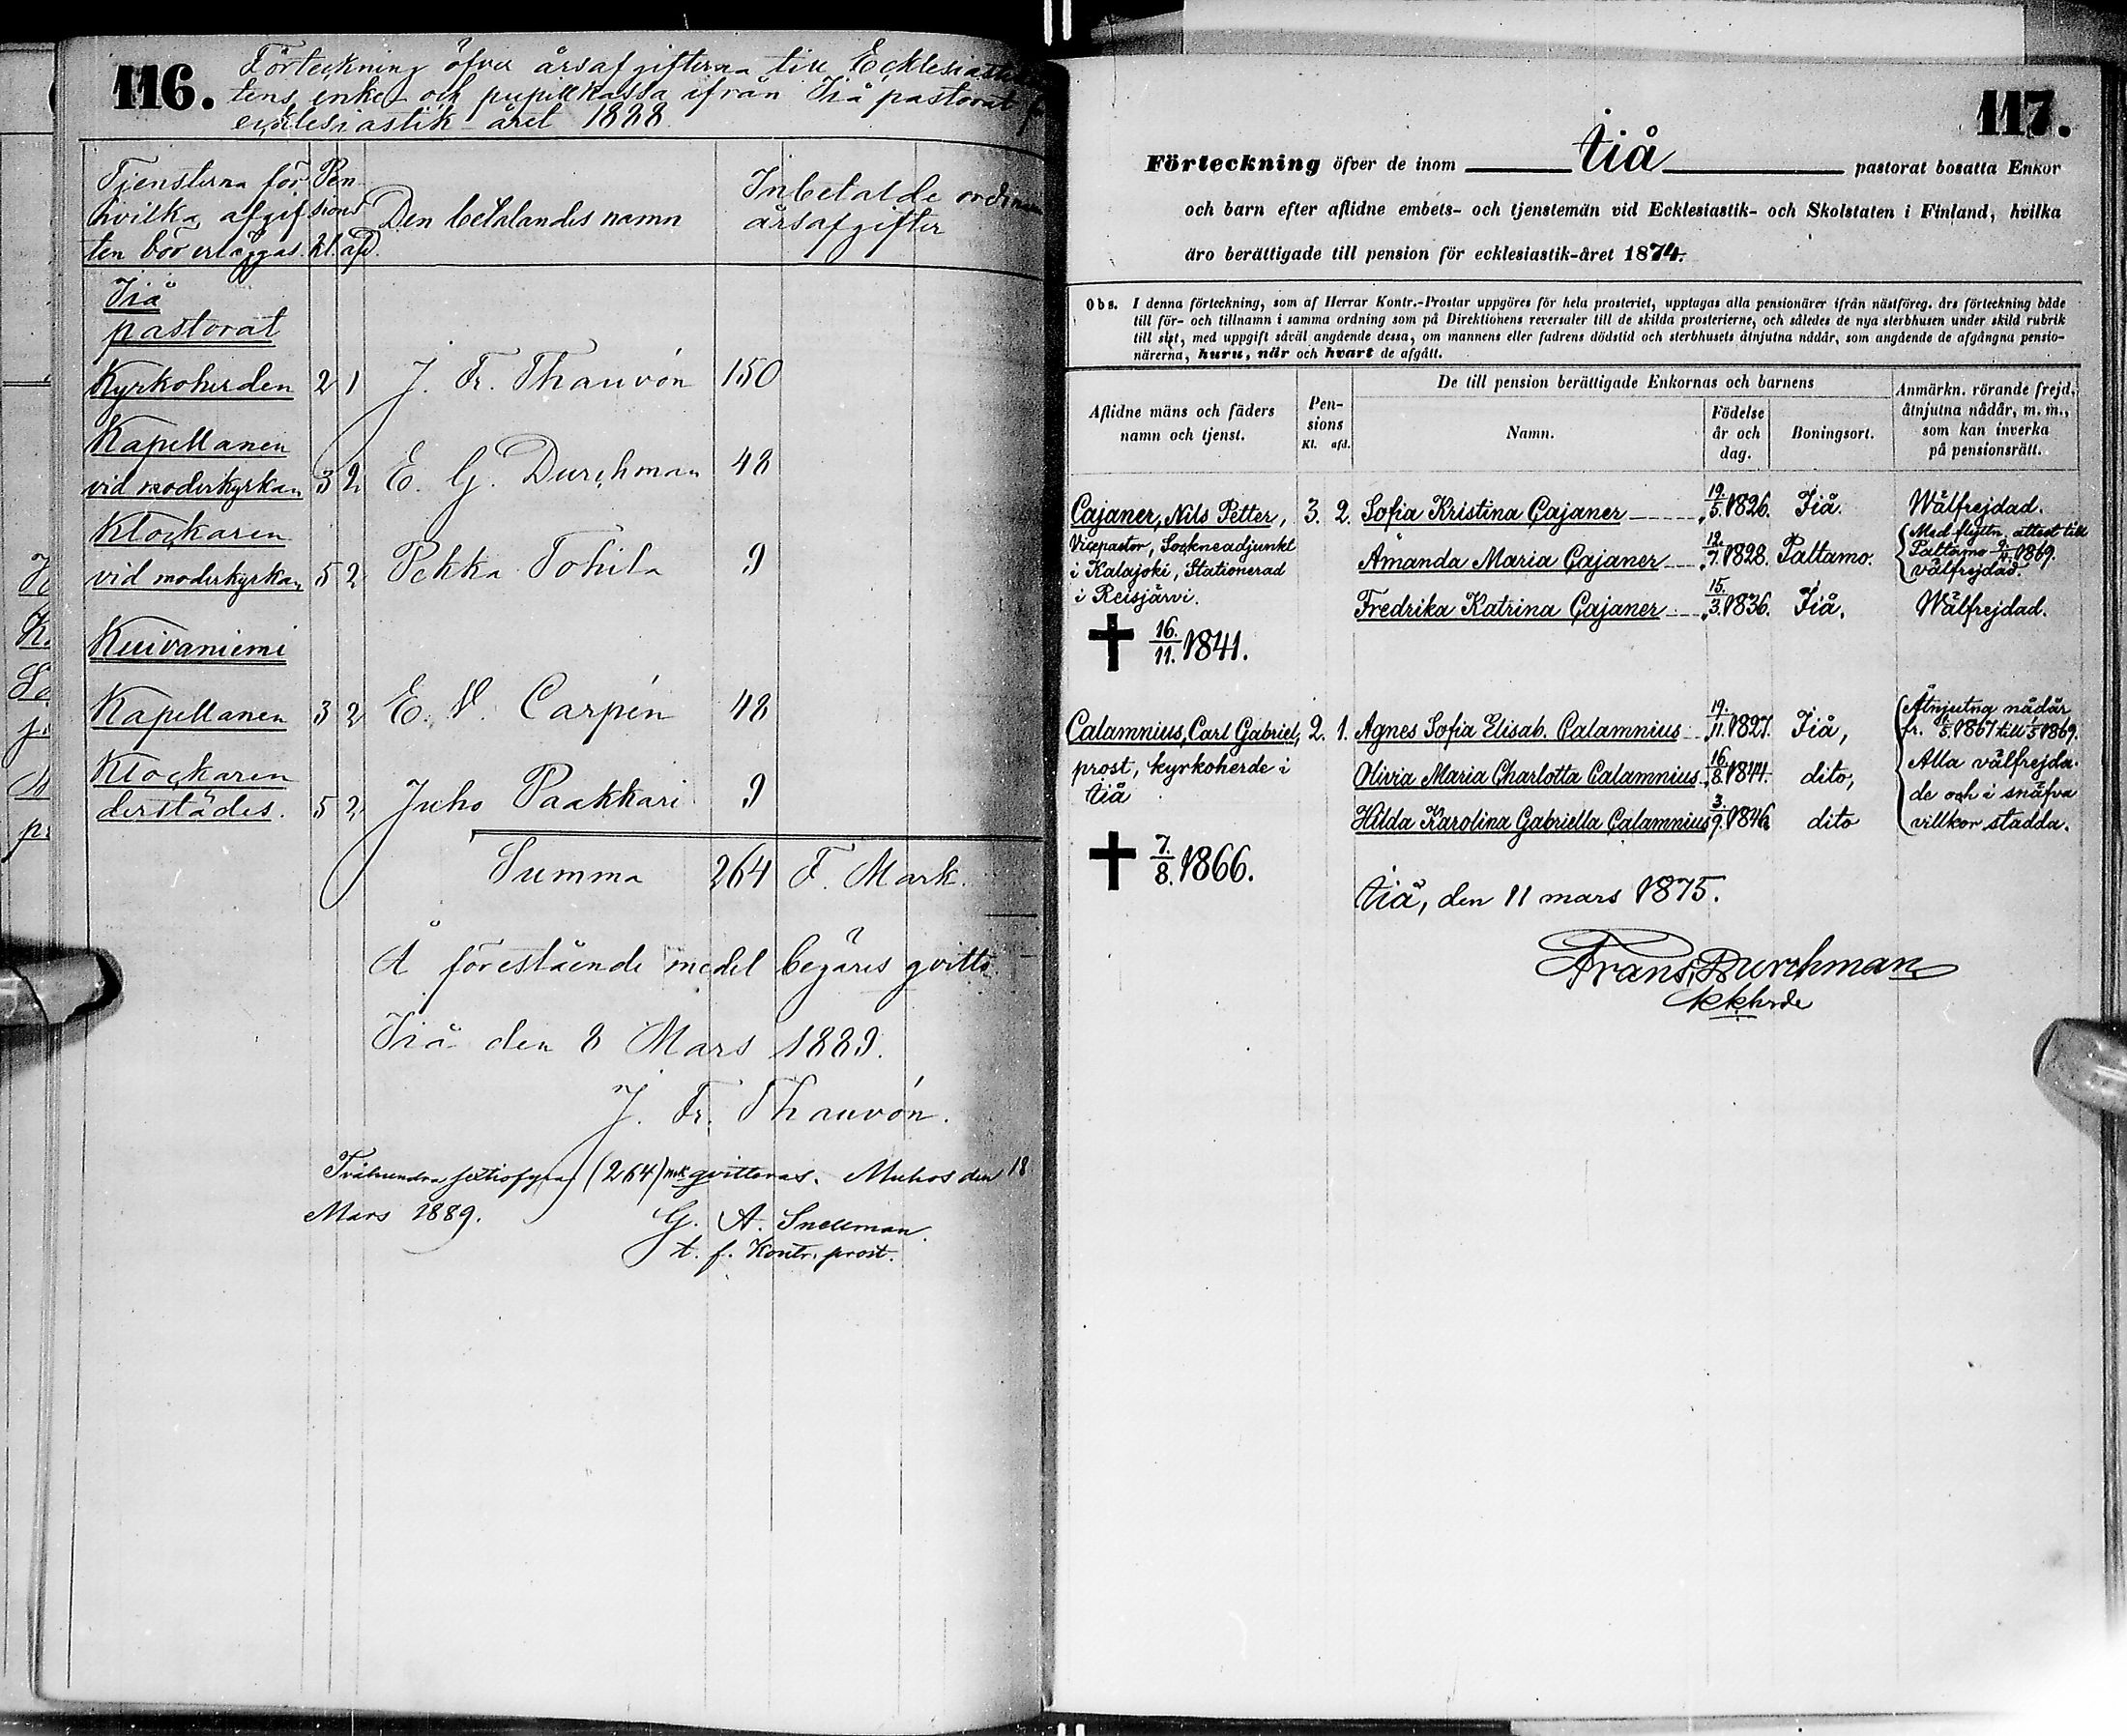 116.
Förteckning öfver årsafgifterna till Ecklesiasti
tens enke- och pupillkassa ifrån Iiå pastorat f
ecklesiastik-året 1888
Tjensterna för hvilka afgiften bör erläggas. Pensions kl. afd. Den betalandes namn Inbetalde årsafgifter
Iiå
pastorat
Kyrkoherden 2 1 J. Fr. Thauvón 150
Kapellanen
vid moderkyrkan 3 2 E. G. Durchman 48
Klockaren
vid moderkyrkan 5 2 Pekka Tohila 9
Kuivaniemi
Kapellanen 3 2 E. V. Carpén 48
Klockaren
derstädes. 5 2 Juho Paakkari 9
Summa 264 F. Mark.
Å förestående medel begäres qvitto
Iiå den 8 Mars 1889.
J. Fr. Thauvón.
Tvåhundra sextiofyra (264) mk qvitteras. Muhos den 18
Mars 1889. G. A. Snellman.
t. f. Kontr. prost.
117.
Förteckning öfver de inom Iiå pastorat bosatta Enkor
och barn efter aflidne embets- och tjenstemän vid Ecklesiastik- och Skolstaten i Finland, hvilka
äro berättigade till pension för ecklesiastik-året 1874.
Obs. I denna förteckning, som af Herrar Kontr.-Prostar uppgöres för hela prosteriet, upptagas alla pensionärer ifrån nästföreg. års förteckning både
till för- och tillnamn i samma ordning som på Direktionens reversaler till de skilda prosterierne, och således de nya sterbhusen under skild rubrik
till sist, med uppgift såväl angående dessa, om mannens eller fadrens dödstid och sterbhusets åtnjutna nådår, som angående de afgångna pensio-
närerna, huru, när och hvart de afgått.
Aflidne mäns och fäders
namn och tjenst.
Pen-
sions
Kl. afd.
De till pension berättigade Enkornas och barnens
Namn.
Födelse
år och
dag.
Boningsort.
Anmärkn. rörande frejd,
åtnjutna nådår, m. m.,
som kan inverka
på pensionsrätt.
Cajaner, Nils Petter, 3. 2. Sofia Kristina Cajaner 19./5. 1826. Iiå. Wälfrejdad.
Vicepastor, Sockneadjunkt
i Kalajoki, Stationerad
i Reisjärvi.
Amanda Maria Cajaner 12./7. 1828. Paltamo. Med flyttn. attest till
Paltamo 1869.
välfrejdad.
Fredrika Katrina Cajaner 15./3. 1836. Iiå. Wälfrejdad.
✝ 16./11. 1841.
Calamnius, Carl Gabriel, 2. 1. Agnes Sofia Elisab. Calamnius 19./11. 1827. Iiå, Åtnjutna nådår
fr. 1/5 1867 till 1/5 1869.
prost, kyrkoherde i
Iiå
Olivia Maria Charlotta Calamnius 16./8. 1844. dito, Alla välfrejda-
de och i snäfva
Hilda Karolina Gabriella Calamnius 3./9. 1846 dito villkor stadda.
✝ 7./8. 1866.
Iiå, den 11 mars 1875.
Frans Durchman
kkherde